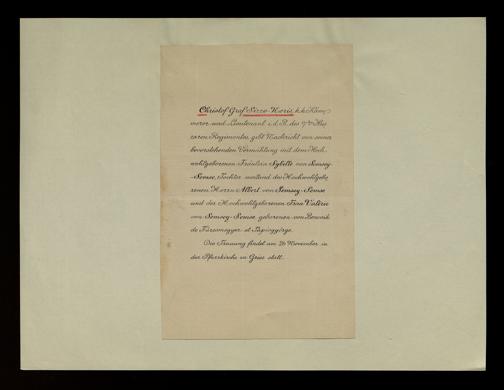 Christof Graf Sizzo-Noris, k.k. Käm-
merer und Lieutenant i. d. R. des 7ten Hu-
zaren Regimentes, gibt Nachricht von seiner
bevorstehenden Vermählung mit dem Hoch-
wohlgeborenen Fräulein Sybille von Semsey
-Semse, Tochter weiland des Hochwohlgebo-
renen Herrn Albert von Semsey-Semse
und der Hochwohlgeborenen Frau Valérie
von Semsey-Semse geborenen von
de Füzesmegyer et Tápiógyörgye.
Die Trauung findet am 26 November in
der Pfarrkirche in Gries statt.